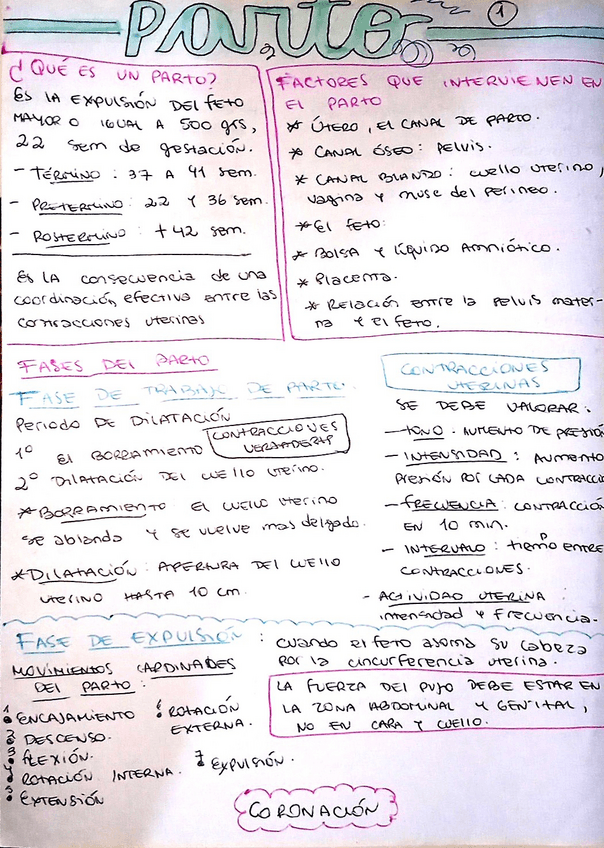 parto
1
¿QUÉ ES UN PARTO?
ES LA EXPULSIÓN DEL FETO
MAYOR O IGUAL A 500 grs,
22 sem de gestación.
- TÉRMINO : 37 A 41 sem.
- PRETERMINO : 22 Y 36 sem.
- POSTERMINO : + 42 sem.
Es LA consecuencia de una
coordinación efectiva entre las
contracciones uterinas
FACTORES QUE INTERVIENEN EN
EL PARTO
* ÚTERO, EL CANAL DE PARTO.
* CANAL ÓSEO: PELVIS.
* CANAL BLANDO: cuello uterino,
vagina y musc del perineo.
* El feto:
* BOLSA Y líquido Amniótico.
* Placenta.
* Relación entre la pelvis mater-
na y el feto.
FASES DEL PARTO
FASE DE TRABAJO DE PARTO.
PERIODO DE DILATACIÓN
1º El BORRAMIENTO
CONTRACCIONES
VERDADERAS
2º DILATACIÓN DEL CUELLO UTERINO.
* BORRAMIENTO El cuello uterino
se ablanda y se vuelve mas delgado.
* DILATACIÓN : APERTURA DEL CUELLO
UTERINO HASTA 10 cm.
CONTRACCIONES
UTERINAS
SE DEBE VALORAR :
- TONO . AUMENTO DE PRESIÓN
- INTENSIDAD : AUMENTO
PRESIÓN POR CADA CONTRACCIÓ
- FRECUENCIA : CONTRACCIÓN
EN 10 min.
- INTERVALO : tiempo ENTRE
CONTRACCIONES.
- ACTIVIDAD UTERINA :
intensidad y frecuencia.
FASE DE EXPULSIÓN : cuando el feto asoma su cabeza
por la circunferencia uterina.
MOVIMIENTOS CARDINALES
DEL PARTO :
1 ENCAJAMIENTO
2 DESCENSO.
3 FLEXIÓN.
4 ROTACIÓN INTERNA.
5 EXTENSIÓN
6 ROTACIÓN
EXTERNA.
7 EXPULSIÓN.
LA FUERZA DEL PUJO DEBE ESTAR EN
LA ZONA ABDOMINAL Y GENITAL,
NO EN CARA Y CUELLO.
CORONACIÓN